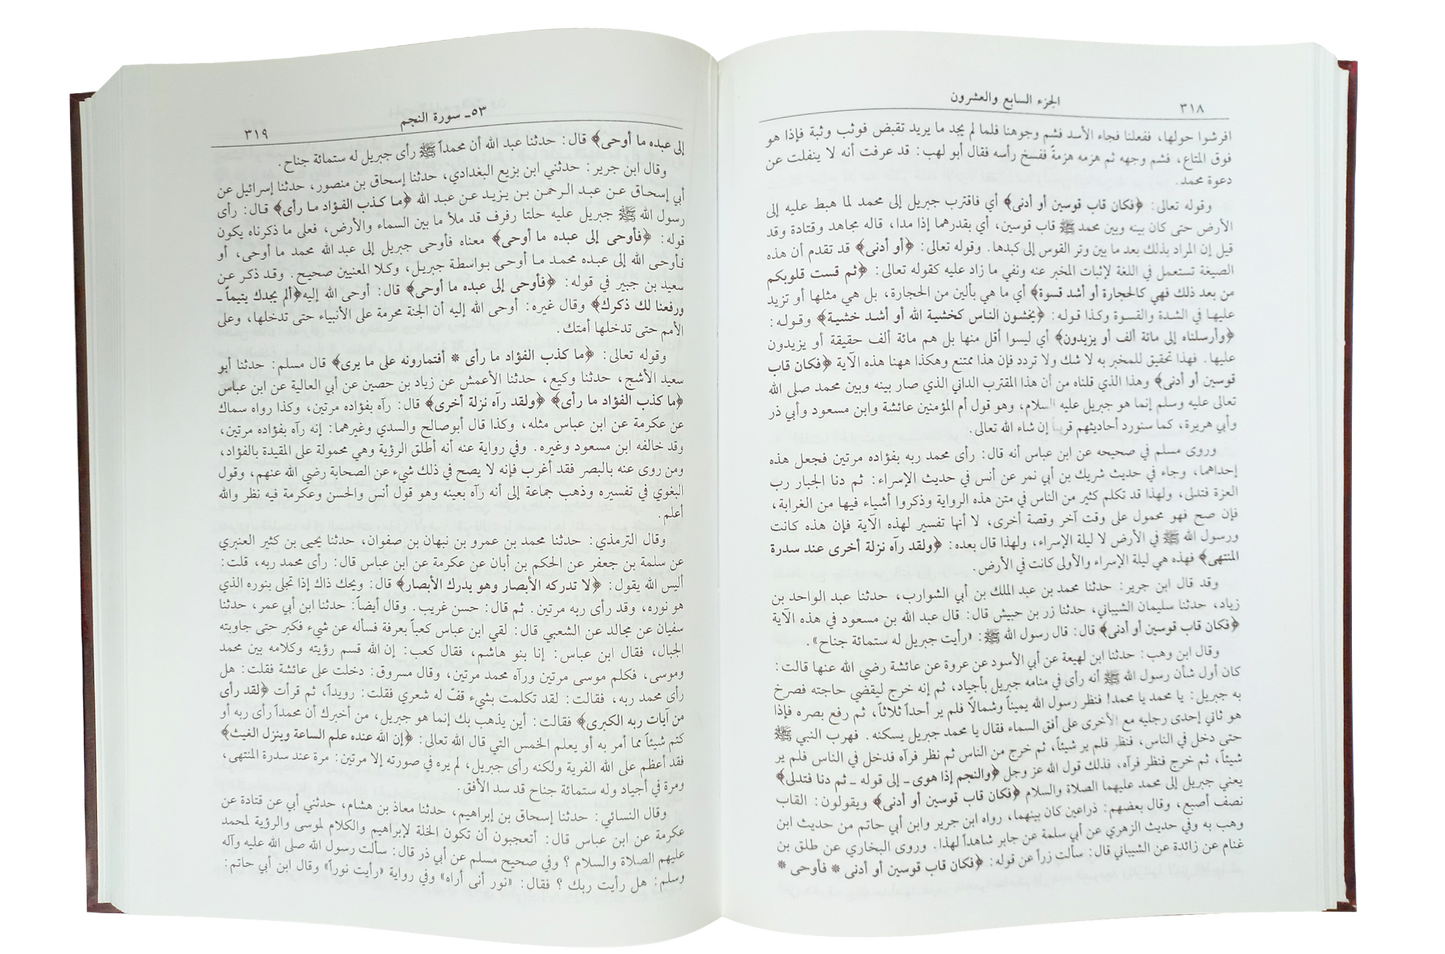 ٣١٨
الجزء السابع والعشرون
افرشوا حولها، ففعلنا فجاء الأسد فشم وجوهنا فلما لم يجد ما يريد تقبض فوثب وثبة فإذا هو
فوق المتاع، فشم وجهه ثم هزمه هزمةً ففسخ رأسه فقال أبو لهب: قد عرفت أنه لا ينفلت عن
دعوة محمد.
وقوله تعالى: ﴿فكان قاب قوسين أو أدنى﴾ أي فاقترب جبريل إلى محمد لما هبط عليه إلى
الأرض حتى كان بينه وبين محمد ﷺ قاب قوسين، أي بقدرهما إذا مدا، قاله مجاهد وقتادة وقد
قيل إن المراد بذلك بعد ما بين وتر القوس إلى كبدها. وقوله تعالى: ﴿أو أدنى﴾ قد تقدم أن هذه
الصيغة تستعمل في اللغة لإثبات المخبر عنه ونفي ما زاد عليه كقوله تعالى: ﴿ثم قست قلوبكم
من بعد ذلك فهي كالحجارة أو أشد قسوة﴾ أي ما هي بألين من الحجارة، بل هي مثلها أو تزيد
عليها في الشدة والقسوة وكذا قوله: ﴿يخشون الناس كخشية الله أو أشد خشية﴾ وقوله:
﴿وأرسلناه إلى مائة ألف أو يزيدون﴾ أي ليسوا أقل منها بل هم مائة ألف حقيقة أو يزيدون
عليها. فهذا تحقيق للمخبر به لا شك ولا تردد فإن هذا ممتنع وهكذا ههنا هذه الآية ﴿فكان قاب
قوسين أو أدنى﴾ وهذا الذي قلناه من أن هذا المقترب الداني الذي صار بينه وبين محمد صلى الله
تعالى عليه وسلم إنما هو جبريل عليه السلام، وهو قول أم المؤمنين عائشة وابن مسعود وأبي ذر
وأبي هريرة، كما سنورد أحاديثهم قريباً إن شاء الله تعالى.
وروى مسلم في صحيحه عن ابن عباس أنه قال: رأى محمد ربه بفؤاده مرتين فجعل هذه
إحداهما، وجاء في حديث شريك بن أبي نمر عن أنس في حديث الإسراء: ثم دنا الجبار رب
العزة فتدلى، ولهذا قد تكلم كثير من الناس في متن هذه الرواية وذكروا أشياء فيها من الغرابة،
فإن صح فهو محمول على وقت آخر وقصة أخرى، لا أنها تفسير لهذه الآية فإن هذه كانت
ورسول الله ﷺ في الأرض لا ليلة الإسراء، ولهذا قال بعده: ﴿ولقد رآه نزلة أخرى عند سدرة
المنتهى﴾ فهذه هي ليلة الإسراء والأولى كانت في الأرض.
وقد قال ابن جرير: حدثنا محمد بن عبد الملك بن أبي الشوارب، حدثنا عبد الواحد بن
زياد، حدثنا سليمان الشيباني، حدثنا زر بن حبيش قال: قال عبد الله بن مسعود في هذه الآية
﴿فكان قاب قوسين أو أدنى﴾ قال: قال رسول الله ﷺ: «رأيت جبريل له ستمائة جناح».
وقال ابن وهب: حدثنا ابن لهيعة عن أبي الأسود عن عروة عن عائشة رضي الله عنها قالت:
كان أول شأن رسول الله ﷺ أنه رأى في منامه جبريل بأجياد، ثم إنه خرج ليقضي حاجته فصرخ
به جبريل: يا محمد يا محمد! فنظر رسول الله يميناً وشمالاً فلم ير أحداً ثلاثاً، ثم رفع بصره فإذا
هو ثاني إحدى رجليه مع الأخرى على أفق السماء فقال يا محمد جبريل يسكنه. فهرب النبي ﷺ
حتى دخل في الناس، فنظر فلم ير شيئاً، ثم خرج من الناس ثم نظر فرآه فدخل في الناس فلم ير
شيئاً، ثم خرج فنظر فرآه، فذلك قول الله عز وجل ﴿والنجم إذا هوى ـ إلى قوله ـ ثم دنا فتدلى﴾
يعني جبريل إلى محمد عليهما الصلاة والسلام ﴿فكان قاب قوسين أو أدنى﴾ ويقولون: القاب
نصف أصبع، وقال بعضهم: ذراعين كان بينهما، رواه ابن جرير وابن أبي حاتم من حديث ابن
وهب به وفي حديث الزهري عن أبي سلمة عن جابر شاهداً لهذا. وروى البخاري عن طلق بن
غنام عن زائدة عن الشيباني قال: سألت زراً عن قوله: ﴿فكان قاب قوسين أو أدنى * فأوحى *
٥٣ـ سورة النجم
٣١٩
إلى عبده ما أوحى﴾ قال: حدثنا عبد الله أن محمداً ﷺ رأى جبريل له ستمائة جناح.
وقال ابن جرير: حدثني ابن بزيع البغدادي، حدثنا إسحاق بن منصور، حدثنا إسرائيل عن
أبي إسحاق عن عبد الرحمن بن يزيد عن عبد الله ﴿ما كذب الفؤاد ما رأى﴾ قال: رأى
رسول الله ﷺ جبريل عليه حلتا رفرف قد ملأ ما بين السماء والأرض، فعلى ما ذكرناه يكون
قوله: ﴿فأوحى إلى عبده ما أوحى﴾ معناه فأوحى جبريل إلى عبد الله محمد ما أوحى، أو
فأوحى الله إلى عبده محمد ما أوحى بواسطة جبريل، وكلا المعنيين صحيح. وقد ذكر عن
سعيد بن جبير في قوله: ﴿فأوحى إلى عبده ما أوحى﴾ قال: أوحى الله إليه﴿ألم يجدك يتيماً ـ
ورفعنا لك ذكرك﴾ وقال غيره: أوحى الله إليه أن الجنة محرمة على الأنبياء حتى تدخلها، وعلى
الأمم حتى تدخلها أمتك.
وقوله تعالى: ﴿ما كذب الفؤاد ما رأى * أفتمارونه على ما يرى﴾ قال مسلم: حدثنا أبو
سعيد الأشج، حدثنا وكيع، حدثنا الأعمش عن زياد بن حصين عن أبي العالية عن ابن عباس
﴿ما كذب الفؤاد ما رأى﴾ ﴿ولقد رآه نزلة أخرى﴾ قال: رآه بفؤاده مرتين، وكذا رواه سماك
عن عكرمة عن ابن عباس مثله، وكذا قال أبوصالح والسدي وغيرهما: إنه رآه بفؤاده مرتين،
وقد خالفه ابن مسعود وغيره. وفي رواية عنه أنه أطلق الرؤية وهي محمولة على المقيدة بالفؤاد،
ومن روى عنه بالبصر فقد أغرب فإنه لا يصح في ذلك شيء عن الصحابة رضي الله عنهم، وقول
البغوي في تفسيره وذهب جماعة إلى أنه رآه بعينه وهو قول أنس والحسن وعكرمة فيه نظر والله
أعلم.
وقال الترمذي: حدثنا محمد بن عمرو بن نبهان بن صفوان، حدثنا يحيى بن كثير العنبري
عن سلمة بن جعفر عن الحكم بن أبان عن عكرمة عن ابن عباس قال: رأى محمد ربه، قلت:
أليس الله يقول: ﴿لا تدركه الأبصار وهو يدرك الأبصار﴾ قال: ويحك ذاك إذا تجلى بنوره الذي
هو نوره، وقد رأى ربه مرتين. ثم قال: حسن غريب. وقال أيضاً: حدثنا ابن أبي عمر، حدثنا
سفيان عن مجالد عن الشعبي قال: لقي ابن عباس كعباً بعرفة فسأله عن شيء فكبر حتى جاوبته
الجبال، فقال ابن عباس: إنا بنو هاشم، فقال كعب: إن الله قسم رؤيته وكلامه بين محمد
وموسى، فكلم موسى مرتين ورآه محمد مرتين، وقال مسروق: دخلت على عائشة فقلت: هل
رأى محمد ربه، فقالت: لقد تكلمت بشيء قفّ له شعري فقلت: رويداً، ثم قرأت ﴿لقد رأى
من آيات ربه الكبرى﴾ فقالت: أين يذهب بك إنما هو جبريل، من أخبرك أن محمداً رأى ربه أو
كتم شيئاً مما أمر به أو يعلم الخمس التي قال الله تعالى: ﴿إن الله عنده علم الساعة وينزل الغيث﴾
فقد أعظم على الله الفرية ولكنه رأى جبريل، لم يره في صورته إلا مرتين: مرة عند سدرة المنتهى،
ومرة في أجياد وله ستمائة جناح قد سد الأفق.
وقال النسائي: حدثنا إسحاق بن إبراهيم، حدثنا معاذ بن هشام، حدثني أبي عن قتادة عن
عكرمة عن ابن عباس قال: أتعجبون أن تكون الخلة لإبراهيم والكلام لموسى والرؤية لمحمد
عليهم الصلاة والسلام ؟ وفي صحيح مسلم عن أبي ذر قال: سألت رسول الله صلى الله عليه وآله
وسلم: هل رأيت ربك ؟ فقال: «نور أنى أراه» وفي رواية «رأيت نوراً» وقال ابن أبي حاتم: